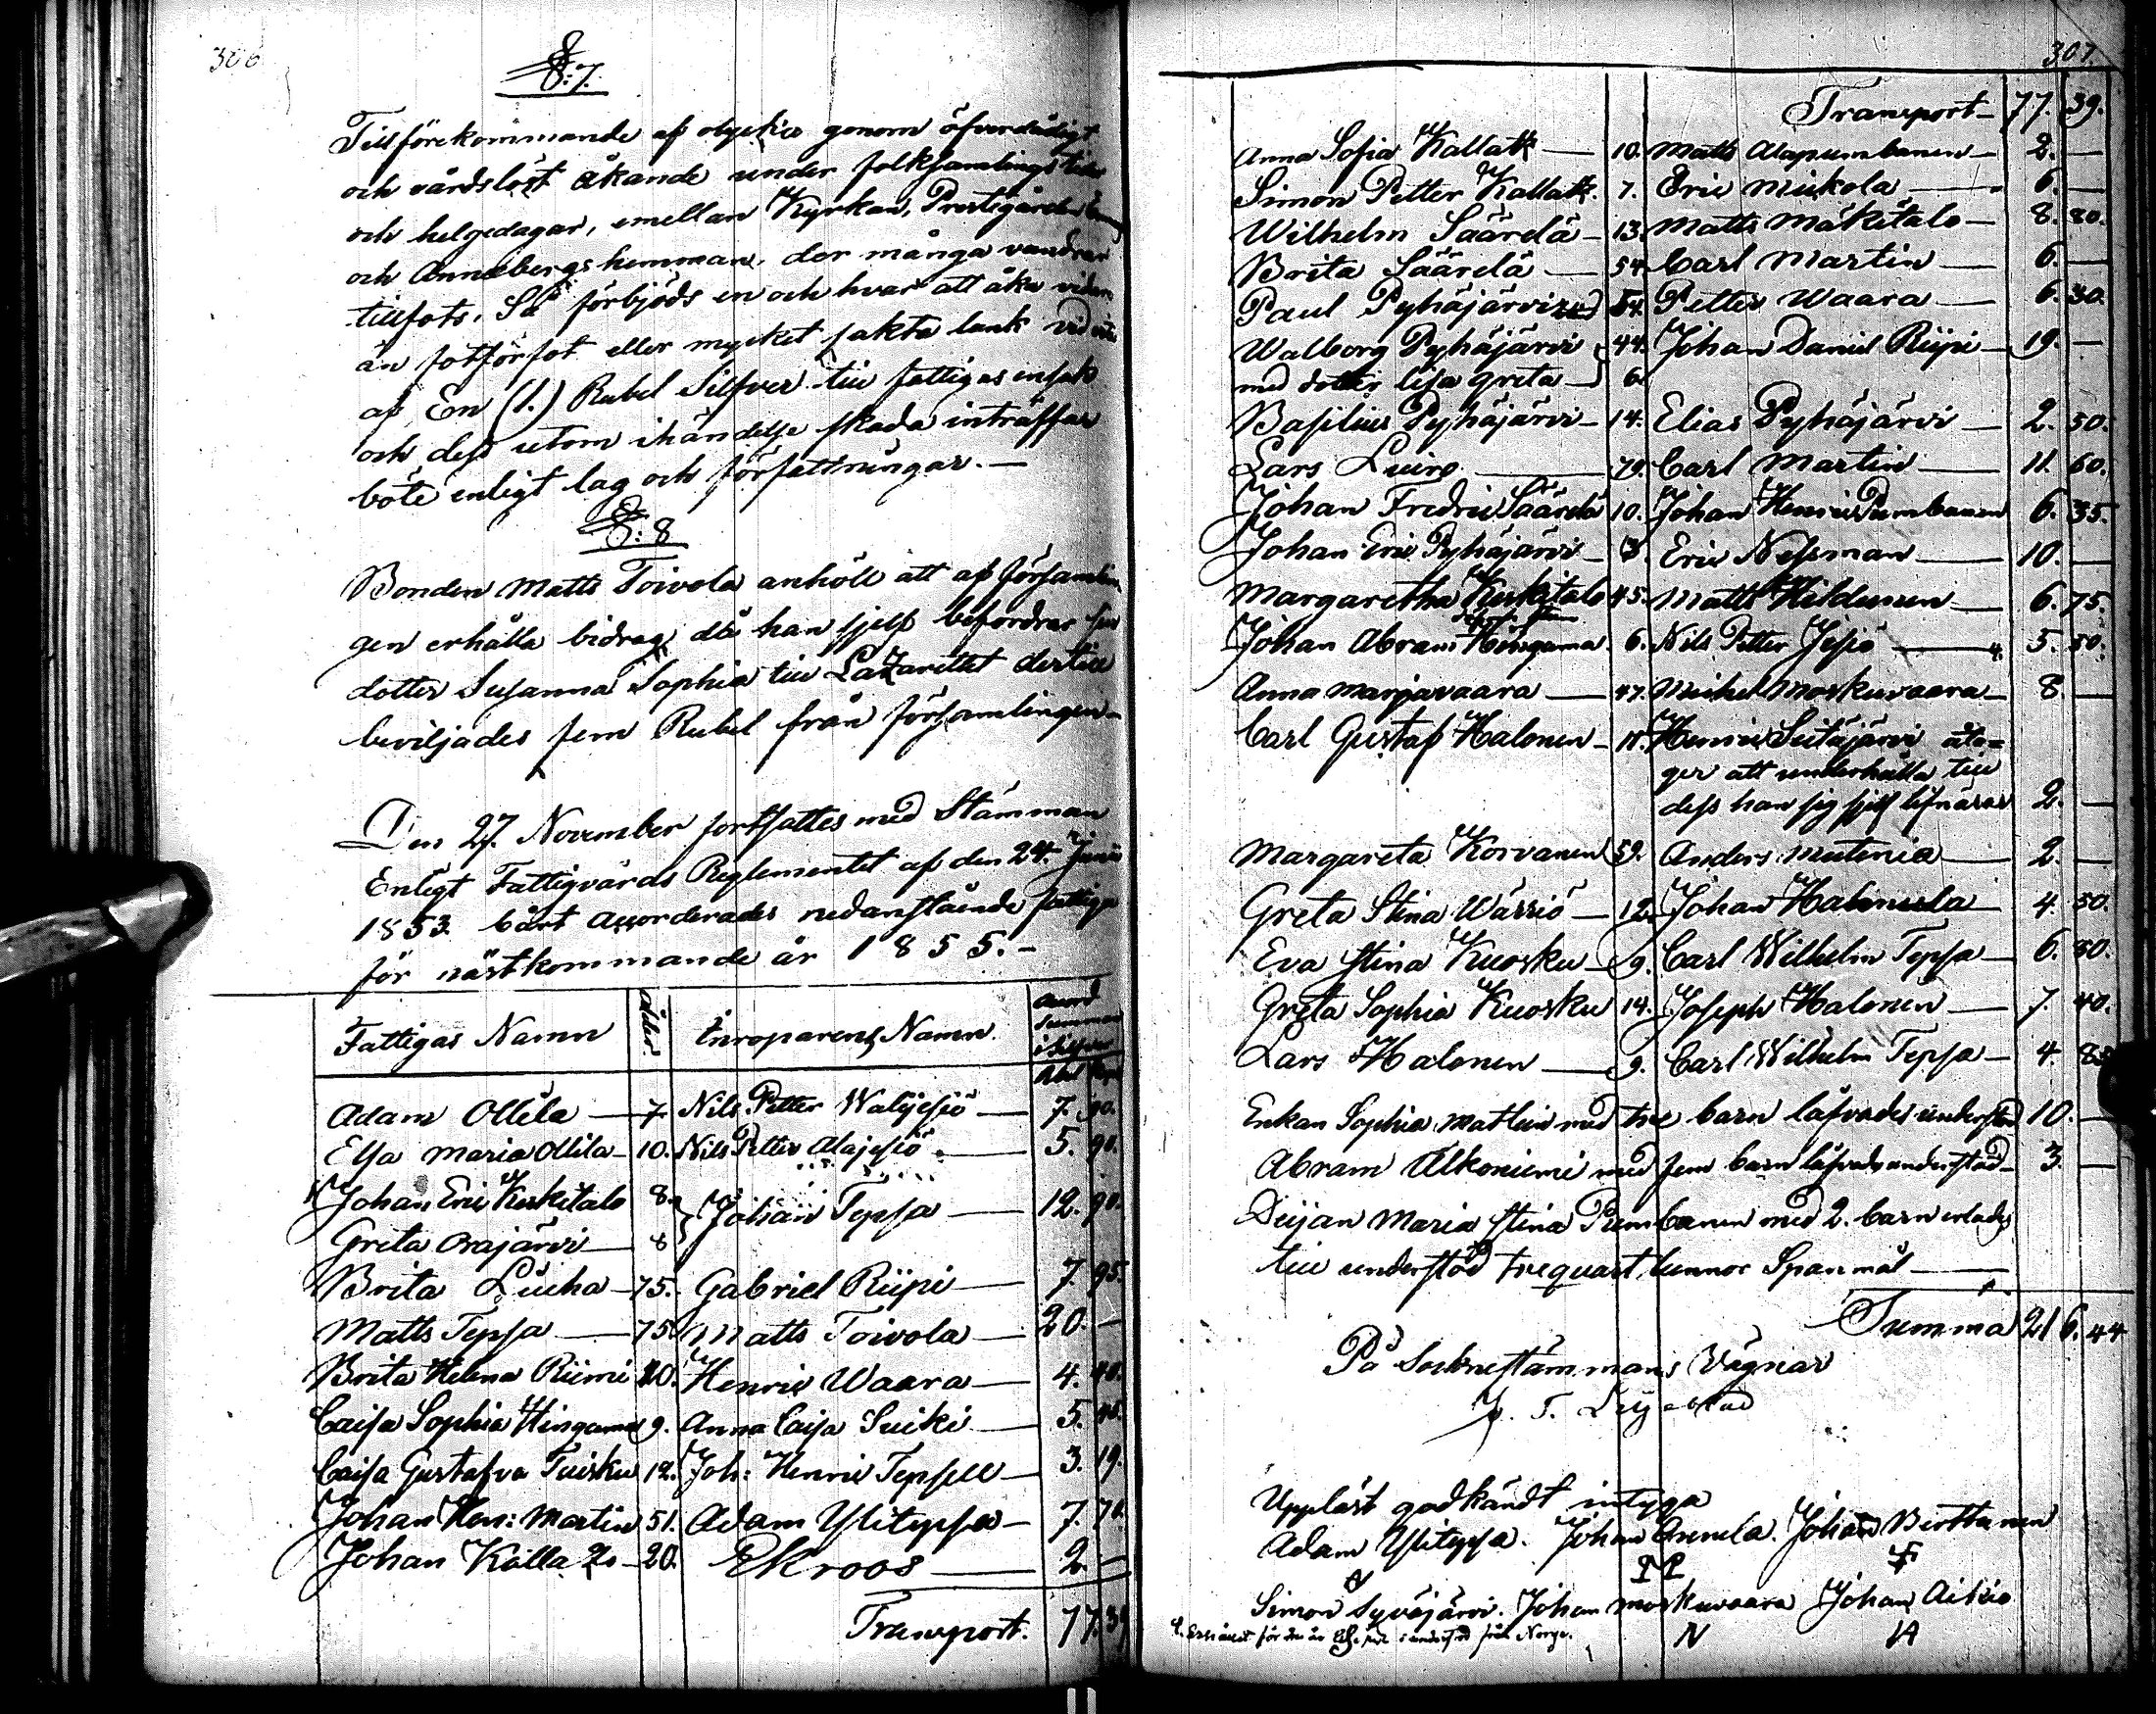 306
§:7.
Till förekommande af olyckor genom öfverdådigt
och vårdslöst åkande under folksamlings tider
och helgedagar, emellan Kyrkan, Prestgården
och Annebergs hemman, der många vandrar
tillfots, Så förbjöds en och hvar att åka vidare
än fotförfot eller mycket sakta lunk vid vite
af En (1.) Rubel Silfver till fattigas
och dess utom ihändelse skada inträffar
böte enligt lag och författningar.—
§:8
Bonden Matts Toivola anhöll att af församlin
gen erhålla bidrag, då han sjelf befordrar sin
dotter Susanna Sophia till Lazarettet dertill
beviljades fem Rubel från församlingen.
Den 27. November fortsattes med Stämman
Enligt Fattigvårds Reglementet af den 24. Junii
1853. bårt accorderades nedanstående fattiga
för nästkommande år 1855.–
Fattigas Namn ålder. Inroparens Namn.
Adam Ollila — 7. Nils Petter — 7. 90.
Elsa Maria Ollila — 10. Nils Petter Alajesiö — 5. 90.
Johan Eric Keskitalo 8. Johan Tepsa — 12. 90.
Greta Orajärvi — 8
Brita — 75. Gabriel Riipi — 7. 95.
Matts Tepsa — 75. Matts Toivola — 20. —
Brita Helena Riimi 20. Henric Waara — 4. 40.
Caisa Sophia Hingama 9. Anna Caisa Suiki — 5. 45.
Caisa Gustafva Tuisku 12. Joh: Henric Tepsell — 3. 19.
Johan Hen: Martin 51. Adam Ylitepsa — 7. 70.
Johan Kalla — 20. Ekroos — 2. —
Transport. 77. 39
307.
Transport — 77. 39.
Anna Sofia — 10. Matts Alapumbanen — 2. —
Simon Petter 7. Eric Mickola — 6. —
Wilhelm Säärelä — 13. Matts Mäkitalo — 8. 80.
Brita Säärelä — 54. Carl Martin — 6. —
Paul 54. Petter Waara — 6. 30.
Walborg Pyhäjärvi 44. Johan Daniel Riipi — 19. —
med dotter Lisa Greta — 6.
Basilius Pyhäjärvi — 14. Elias Pyhäjärvi — 2. 50.
Lars Luiro — 79. Carl Martin — 11. 60.
Johan Fredric Säärelä 10. Johan Henric Pumbanen 6. 35.
Johan Eric Pyhäjärvi — 3. Eric Nessman — 10. —
Margaretha Keskitalo 45. Matts Hildunen — 6. 75.
Johan Abram Hingama 6. Nils Petter Jesiö — 4. 5. 50.
Anna Marjavaara — 47. Michel Moskuvaara — 8. —
Carl Gustaf Halonen — 11. Henric Seitajärvi åta=
ger att underhålla till
dess han sig sjelf lifnärar 2. —
Margareta Korvanen 59. Anders — 2. —
Greta Stina Wärriö — 12. Johan — 4. 50.
Eva Stina Kuosku — 9. Carl Wilhelm Tepsa — 6. 30.
Greta Sophia Kuosku 14. Joseph Halonen — 7. 40.
Lars Halonen — 9. Carl Wilhelm Tepsa — 4. 85
Enkan Sophia Matlein med tre barn låfvades understöd 10. —
Abram Alkoniemi med fem barn låfvades understöd 3. —
Pijan Maria Stina Pumbanen med 2. barn erlades
till understöd trequart tunnor Spanmål —
Summa 216. 44
På Socknestämmans Vägnar
J. T.
Uppläst godkändt intyga
Adam Ylitepsa. Johan Johan Berttanen
Simon Syväjärvi. Johan Moskuvaara Johan Aikio
N A